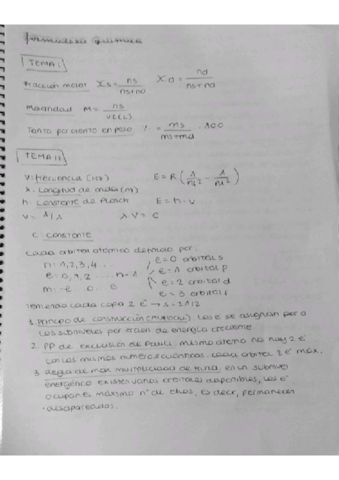 Formulario Química
TEMA I
Fracción molar Xs = ns/(ns+nd) XD = nd/(ns+nd)
Molaridad M = ns/V(L)
Tanto por ciento en peso % = ms/(ms+md) · 100
TEMA II
V: frecuencia (Hz) E = R(1/n1² - 1/n2²)
λ: Longitud de onda (m)
h: Constante de Planck E = h·ν
V = 1/λ λV = C
C: constante
Cada orbital atómico definido por:
n: 1, 2, 3, 4... l = 0 orbital s
l: 0, 1, 2 ... n-1 l = 1 orbital p
m: -l ... 0 ... l l = 2 orbital d
l = 3 orbital f
Teniendo cada capa 2 e⁻ → s = ±1/2
1. Principio de construcción: Los e⁻ se asignan por a
los subniveles por orden de energía creciente
2. PP de exclusión de Pauli: mismo átomo no hay 2 e⁻
con los mismos números cuánticos. Cada orbital 2 e⁻ máx.
3. Regla de máx multiplicidad de Hund, en un subnivel
energético existen varios orbitales disponibles, los e⁻
ocupan el máximo nº de ellos, es decir, permanecen
desapareados.